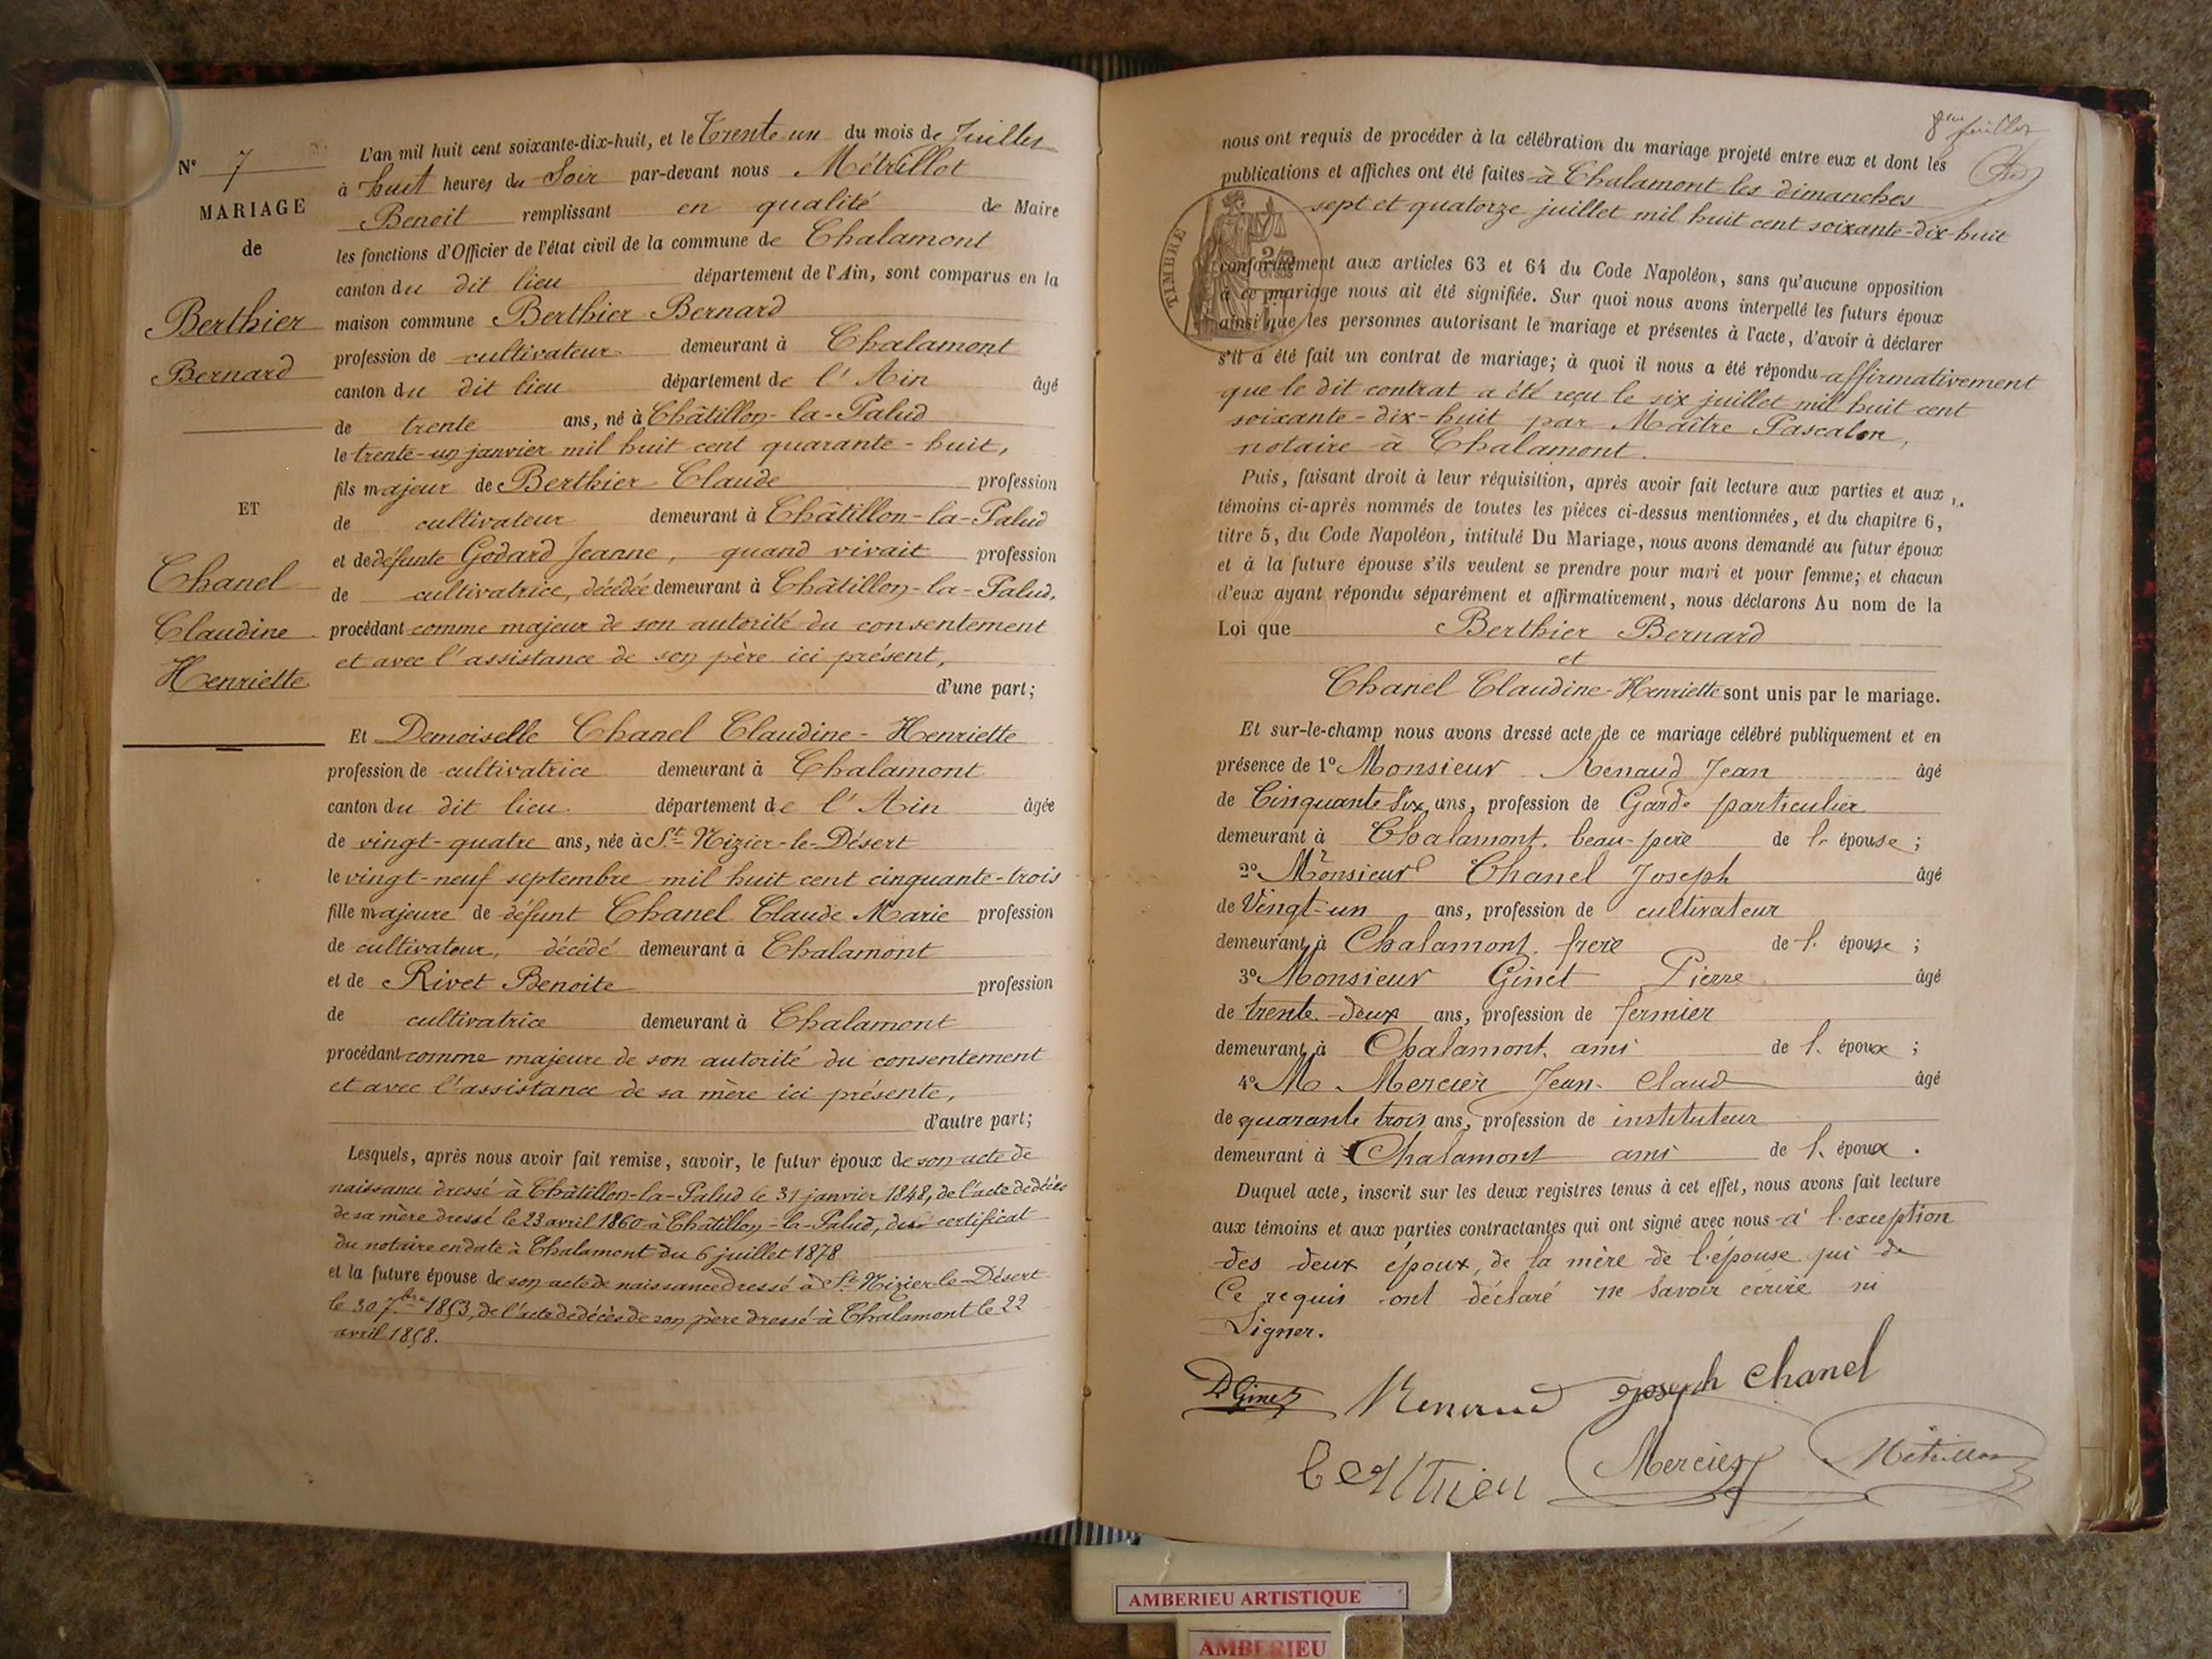 N° 7
MARIAGE
de
Berthier
Bernard
ET
Chanel
Claudine
Henriette
L'an mil huit cent soixante-dix-huit, et le Trente-un du mois de Juillet
à huit heures du Soir par-devant nous Métrillot
Benoit remplissant en qualité de Maire
les fonctions d'Officier de l'état civil de la commune de Chalamont
canton du dit lieu département de l'Ain, sont comparus en la
maison commune Berthier Bernard
profession de cultivateur demeurant à Chalamont
canton du dit lieu département de l'Ain âgé
de trente ans, né à Châtillon-la-Palud
le trente-un janvier mil huit cent quarante-huit,
fils majeur de Berthier Claude profession
de cultivateur demeurant à Châtillon-la-Palud
et de défunte Godard Jeanne, quand vivait profession
de cultivatrice, décédée demeurant à Châtillon-la-Palud,
procédant comme majeur de son autorité du consentement
et avec l'assistance de son père ici présent,
d'une part;
Et Demoiselle Chanel Claudine-Henriette
profession de cultivatrice demeurant à Chalamont
canton du dit lieu département de l'Ain âgée
de vingt-quatre ans, née à St-Nizier-le-Désert
le vingt-neuf septembre mil huit cent cinquante-trois
fille majeure de défunt Chanel Claude Marie profession
de cultivateur, décédé demeurant à Chalamont
et de Rivet Benoite profession
de cultivatrice demeurant à Chalamont
procédant comme majeure de son autorité du consentement
et avec l'assistance de sa mère ici présente,
d'autre part;
Lesquels, après nous avoir fait remise, savoir, le futur époux de son acte de
naissance dressé à Châtillon-la-Palud le 31 janvier 1848, de l'acte de décès
de sa mère dressé le 23 avril 1860 à Châtillon-la-Palud, du certificat
du notaire en date à Chalamont du 6 juillet 1878
et la future épouse de son acte de naissance dressé à St-Nizier-le-Désert
le 30 7bre 1853, de l'acte de décès de son père dressé à Chalamont le 22
avril 1858.
8me feuillet
nous ont requis de procéder à la célébration du mariage projeté entre eux et dont les
publications et affiches ont été faites à Chalamont les dimanches
sept et quatorze juillet mil huit cent soixante-dix-huit
TIMBRE
conformément aux articles 63 et 64 du Code Napoléon, sans qu'aucune opposition
à ce mariage nous ait été signifiée. Sur quoi nous avons interpellé les futurs époux
ainsi que les personnes autorisant le mariage et présentes à l'acte, d'avoir à déclarer
s'il a été fait un contrat de mariage; à quoi il nous a été répondu affirmativement
que le dit contrat a été reçu le six juillet mil huit cent
soixante-dix-huit par Maître Pascalon,
notaire à Chalamont.
Puis, faisant droit à leur réquisition, après avoir fait lecture aux parties et aux
témoins ci-après nommés de toutes les pièces ci-dessus mentionnées, et du chapitre 6,
titre 5, du Code Napoléon, intitulé Du Mariage, nous avons demandé au futur époux
et à la future épouse s'ils veulent se prendre pour mari et pour femme; et chacun
d'eux ayant répondu séparément et affirmativement, nous déclarons Au nom de la
Loi que Berthier Bernard
et
Chanel Claudine-Henriette sont unis par le mariage.
Et sur-le-champ nous avons dressé acte de ce mariage célébré publiquement et en
présence de 1° Monsieur Renaud Jean âgé
de Cinquante six ans, profession de Garde particulier
demeurant à Chalamont. beau-père de l. épouse;
2° Monsieur Chanel Joseph âgé
de Vingt-un ans, profession de cultivateur
demeurant à Chalamont. frere de l. épouse;
3° Monsieur Ginet Pierre âgé
de trente-deux ans, profession de fermier
demeurant à Chalamont. ami de l. époux;
4° M Mercier Jean-Claud âgé
de quarante trois ans, profession de instituteur
demeurant à Chalamont ami de l. époux.
Duquel acte, inscrit sur les deux registres tenus à cet effet, nous avons fait lecture
aux témoins et aux parties contractantes qui ont signé avec nous à l'exception
des deux époux, de la mère de l'épouse qui de
Ce requis ont déclaré ne savoir écrire ni
Signer.
Ginet Renaud Joseph Chanel
Mercier Métrillot
AMBERIEU ARTISTIQUE
AMBERIEU